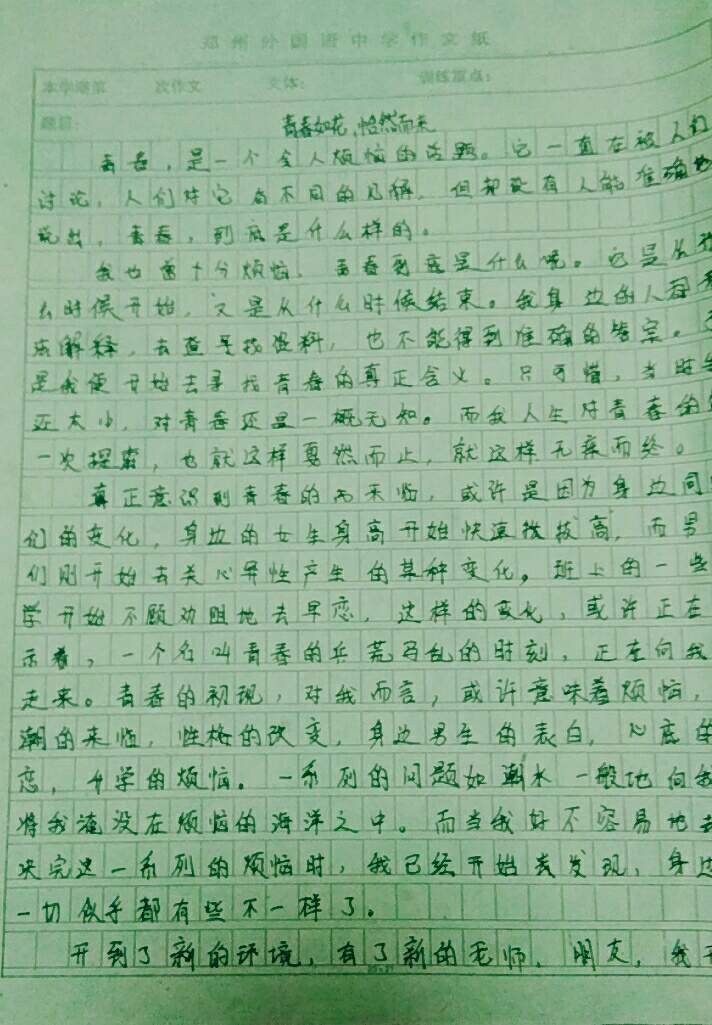 郑州外国语中学作文纸
本学期第 次作文 文体: 训练重点:
题目: 青春如花,恰然而来
青春,是一个令人烦恼的话题。它一直在被人们
讨论,人们对它有不同的见解,但却没有人能准确地
说出,青春,到底是什么样的。
我也曾十分烦恼,青春到底是什么呢。它是从什
么时候开始,又是从什么时候结束。我身边的人都无
法解释,去查寻找资料,也不能得到准确的答案。于
是我便开始去寻找青春的真正含义。只可惜,当时
还太小,对青春还是一概无知。而我人生对青春的
一次探索,也就这样戛然而止,就这样无疾而终。
真正意识到青春的而来临,或许是因为身边同
们的变化,身边的女生身高开始快速拔高,而男
们则开始去关心异性产生的某种变化。班上的一些
学开始不顾劝阻地去早恋,这样的变化,或许正在
示着,一个名叫青春的兵荒马乱的时刻,正在向我
走来。青春的初现,对我而言,或许意味着烦恼,
潮的来临,性格的改变,身边男生的表白,心底的
恋,升学的烦恼。一系列的问题如潮水一般地向我
将我淹没在烦恼的海洋之中。而当我好不容易地去
决完这一系列的烦恼时,我已经开始去发现,身边
一切似乎都有些不一样了。
开到了新的环境,有了新的老师,朋友,我开